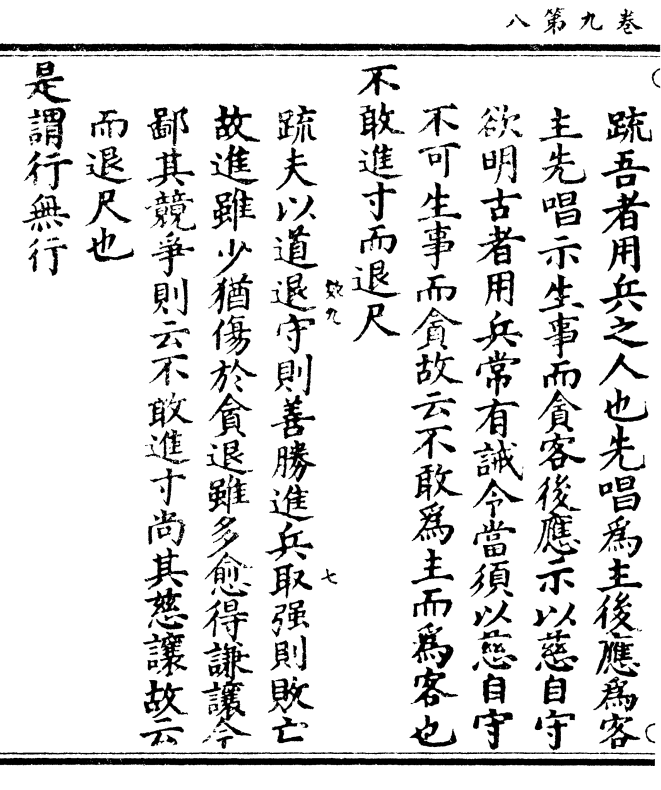 卷九第八
疏吾者用兵之人也先唱爲主後應爲客
主先唱示生事而貪客後應示以慈自守
欲明古者用兵常有誡令當須以慈自守
不可生事而貪故云不敢爲主而爲客也
不敢進寸而退尺
疏夫以道退守則善勝進兵取强則敗亡
故進雖少猶傷於貪退雖多愈得謙讓今
鄙其競爭則云不敢進寸尚其慈讓故云
而退尺也
是謂行無行